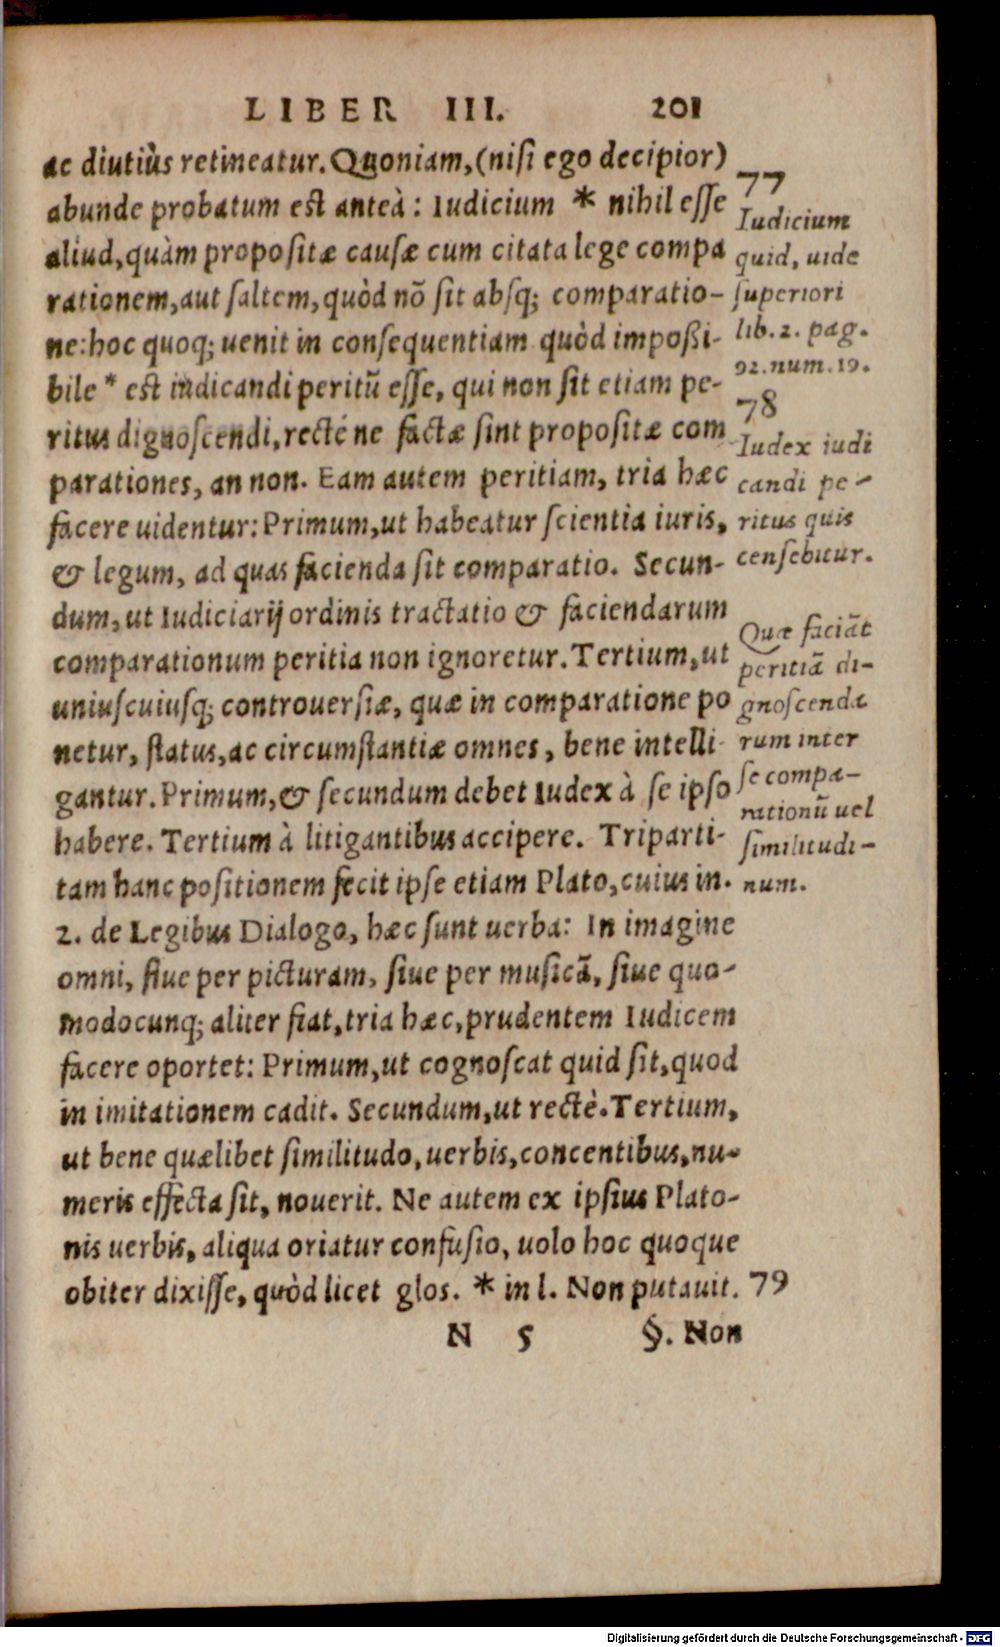 LIBER III. 201
ac diutiùs retineatur. Quoniam, (nisi ego decipior)
abunde probatum est anteà: Iudicium * nihil esse
aliud, quàm propositæ causæ cum citata lege compa
rationem, aut saltem, quòd nõ sit absq; comparatio-
ne: hoc quoq; uenit in consequentiam quòd impoßi-
bile * est iudicandi peritũ esse, qui non sit etiam pe-
ritus dignoscendi, recté ne factæ sint propositæ com
parationes, an non. Eam autem peritiam, tria hæc
facere uidentur: Primum, ut habeatur scientia iuris,
& legum, ad quas facienda sit comparatio. Secun-
dum, ut Iudiciarij ordinis tractatio & faciendarum
comparationum peritia non ignoretur. Tertium, ut
uniuscuiusq; controuersiæ, quæ in comparatione po
netur, status, ac circumstantiæ omnes, bene intelli-
gantur. Primum, & secundum debet Iudex à se ipso
habere. Tertium à litigantibus accipere. Triparti-
tam hanc positionem fecit ipse etiam Plato, cuius in.
2. de Legibus Dialogo, hæc sunt uerba: In imagine
omni, siue per picturam, siue per musicã, siue quo-
modocunq; aliter fiat, tria hæc, prudentem Iudicem
facere oportet: Primum, ut cognoscat quid sit, quod
in imitationem cadit. Secundum, ut rectè. Tertium,
ut bene quælibet similitudo, uerbis, concentibus, nu-
meris effecta sit, nouerit. Ne autem ex ipsius Plato-
nis uerbis, aliqua oriatur confusio, uolo hoc quoque
obiter dixisse, quòd licet glos. * in l. Non putauit.
N 5 §. Non
77
Iudicium
quid, uide
superiori
lib. 2. pag.
92. num. 19.
78
Iudex iudi
candi pe-
ritus quis
censebitur.
Quæ faciãt
peritiã di-
gnoscenda
rum inter
se compa-
rationũ uel
similitudi-
num.
79
Digitalisierung gefördert durch die Deutsche Forschungsgemeinschaft - DFG